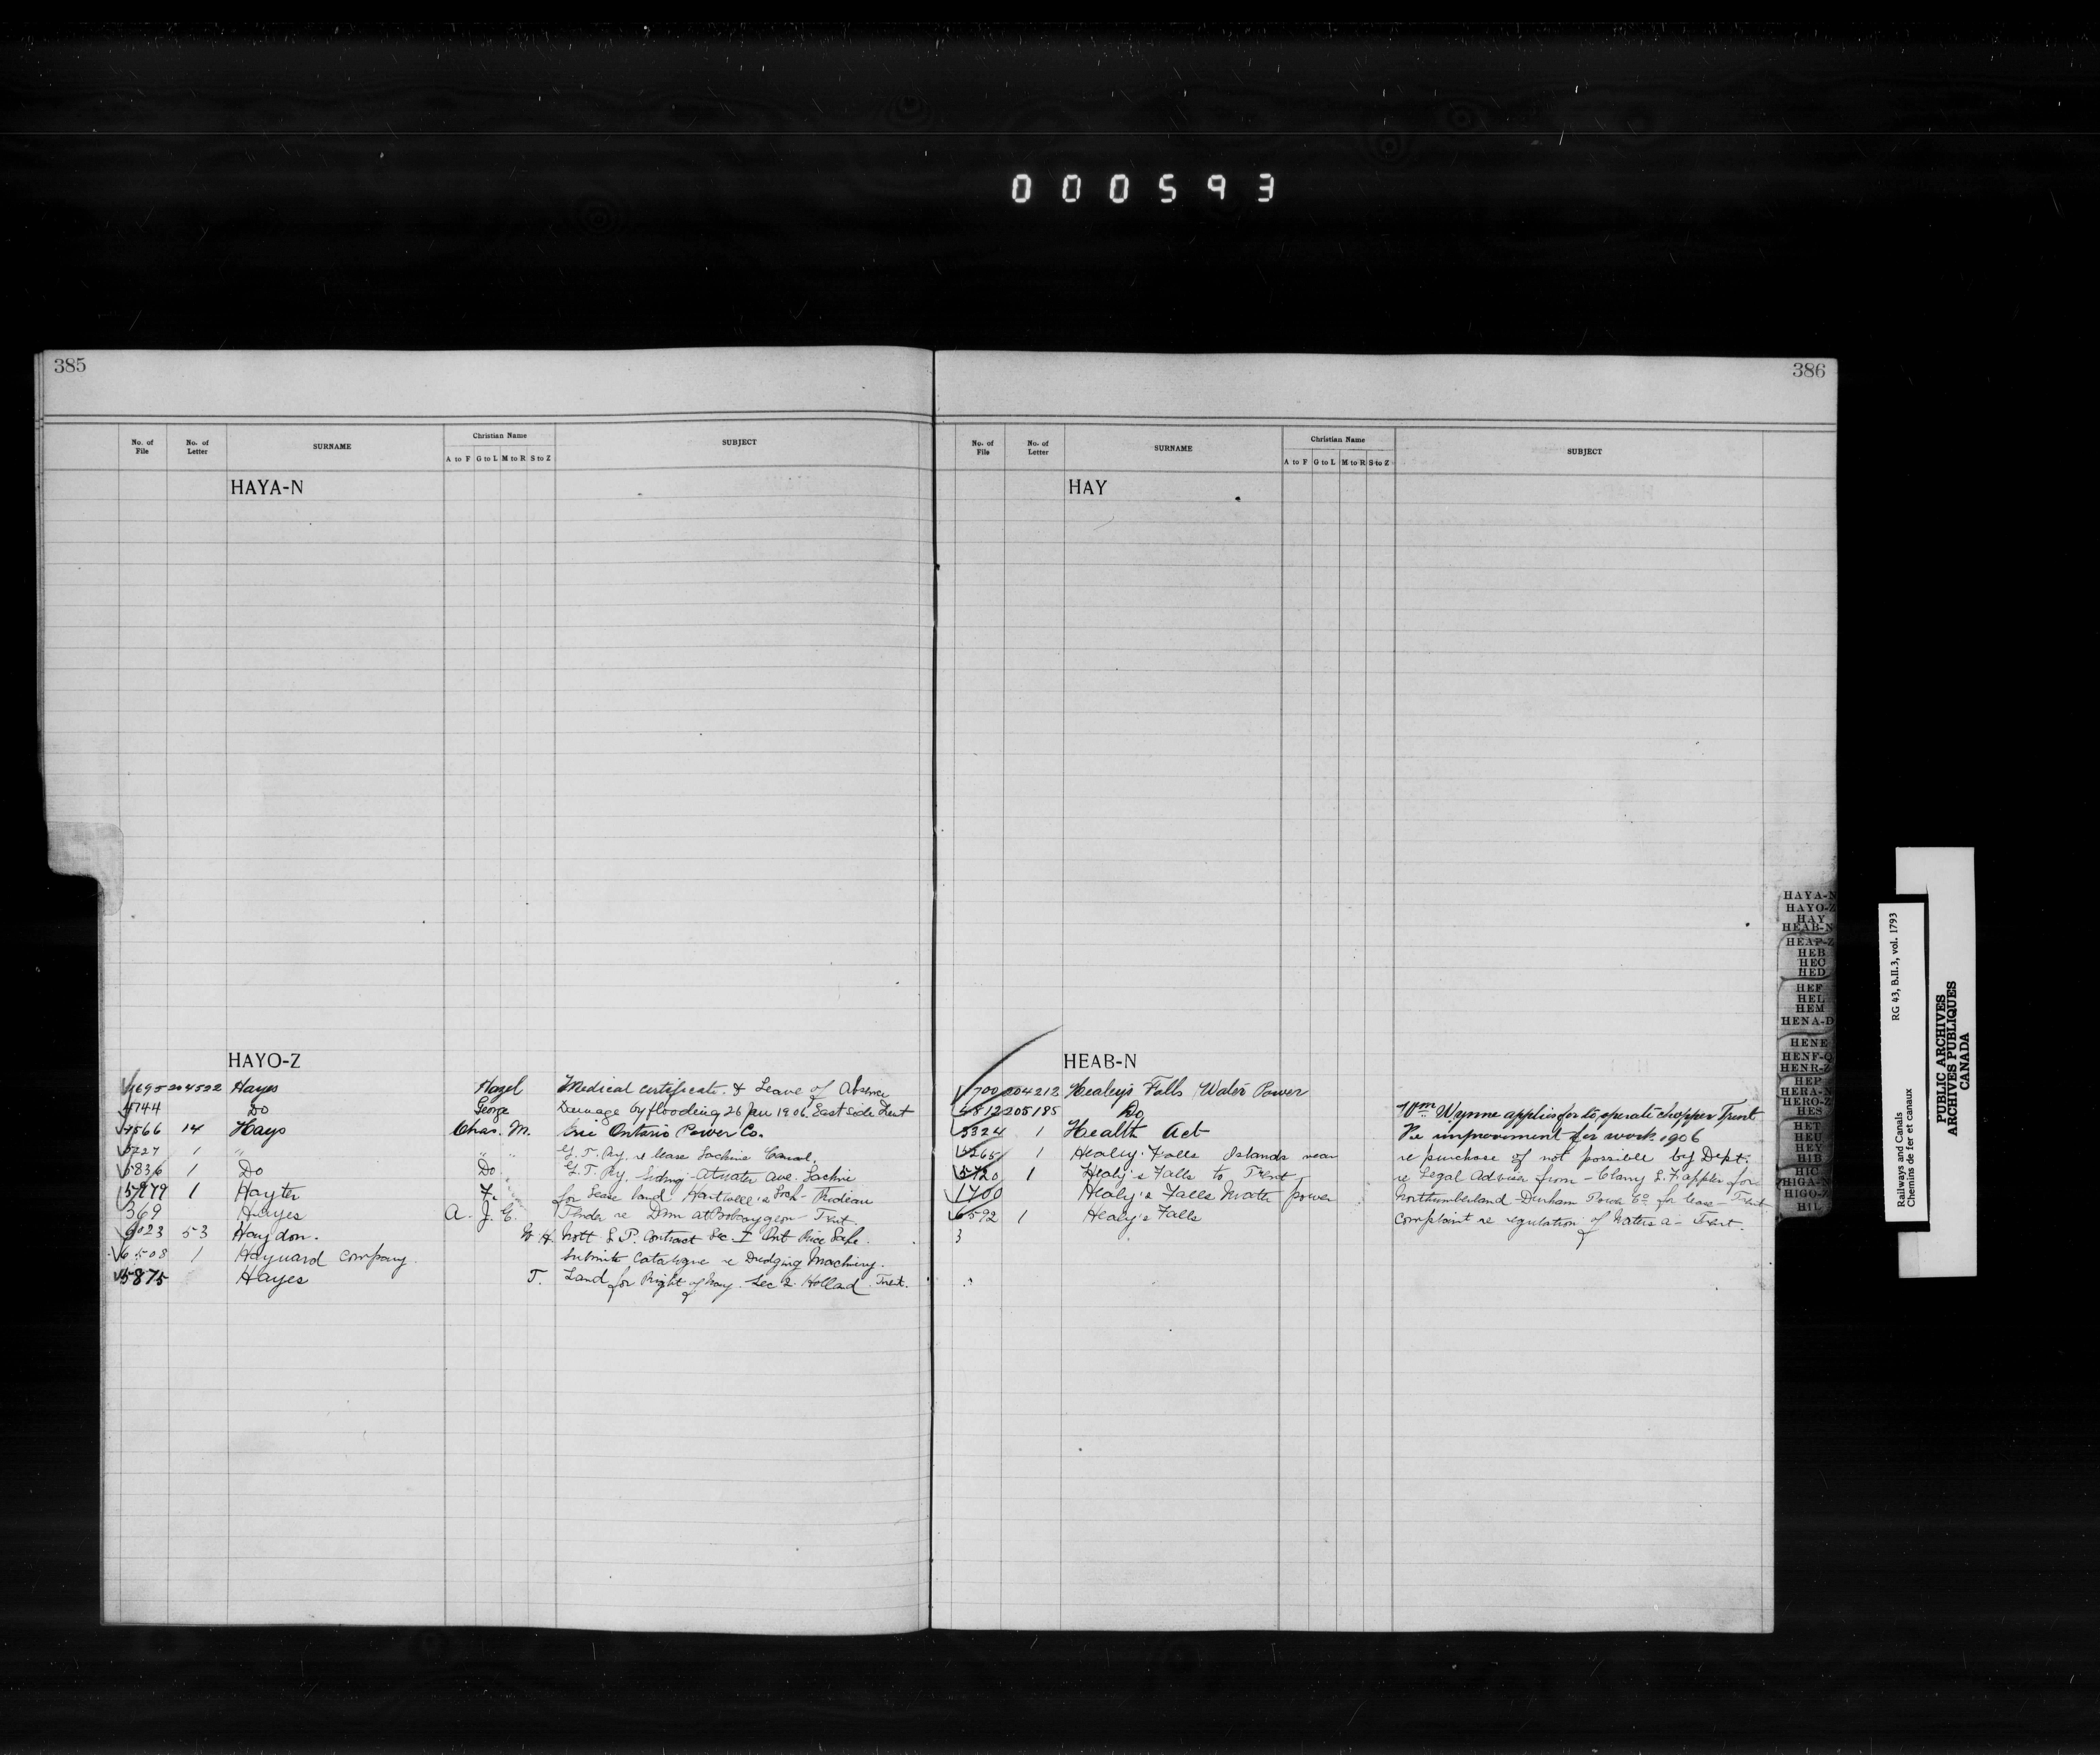 000593
385
No. of File No. of Letter SURNAME Christian Name A to F G to L M to R S to Z SUBJECT
HAYA-N
HAYO-Z
204522 Hayes Hazel Medical certificate & Leave of Absence
4744 Do George Damage by flooding 26 Jan 1906. East side Trent
4566 14 Hays Chas. M. Ontario Power Co.
5727 1 " " " G. T. Ry. re lease Lachine Canal.
5836 1 Do Do. G. T. Ry. Siding Atwater Ave. Lachine
1 Hayter F. for Lease land Hartwell's Lock - Rideau
369 Hayes A. J. E. Tender re Dam at Bobcaygeon - Trent.
6023 53 Haydon. W H. Nott L P. Contract Sec I Ont Rice Lake.
6508 1 Hayward Company. Submits Catalogue re Dredging Machinery.
5875 Hayes T. Land for Right of Way. Sec 2. Holland Trent.
386
No. of File No. of Letter SURNAME Christian Name A to F G to L M to R S to Z SUBJECT
HAY
HEAB-N
1700 204212 Healey's Falls Water Power
4812 205185 Do Wm Wynne applies for to operate chopper Trent
5324 1 Health Act Re improvement for work 1906
5265 1 Healey Falls Islands near re purchase of not possible by Dept.
5720 1 Healy's Falls to Trent re Legal Adviser from - Clarry L. F. applies for
1700 Healy's Falls Water power Northumberland - Durham Power Co for lease - Trent
6592 1 Healy's Falls complaint re regulation of Waters a - Trent.
3
HAYA-N
HAYO-Z
HAY
HEAB-N
HEAP-Z
HEB
HEC
HED
HEF
HEL
HEM
HENA-D
HENE
HENF-Q
HENR-Z
HEP
HERA-N
HERO-Z
HES
HET
HEU
HEY
HIB
HIC
HIGA-N
HIGO-Z
HIL
Railways and Canals RG 43, B.II.3, vol. 1793
Chemins de fer et canaux
PUBLIC ARCHIVES
ARCHIVES PUBLIQUES
CANADA